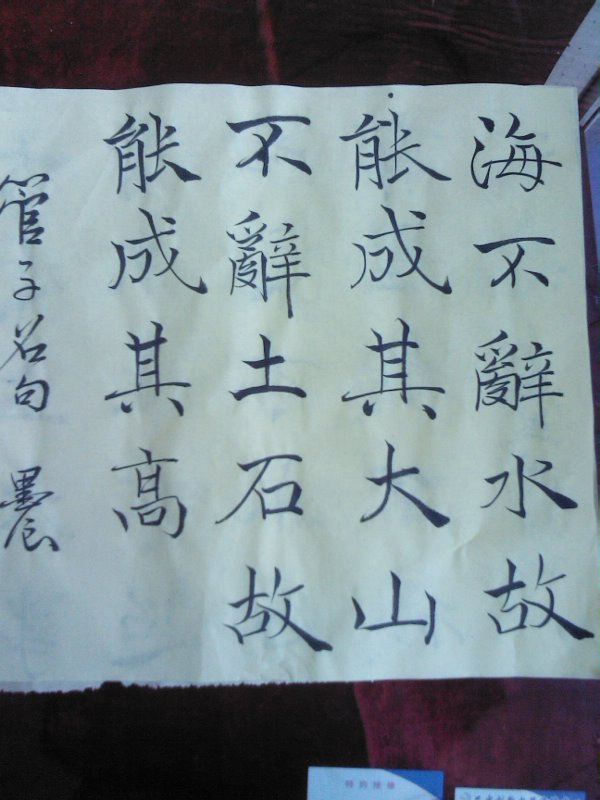 海不辭水故
能成其大山
不辭土石故
能成其高
管子名句